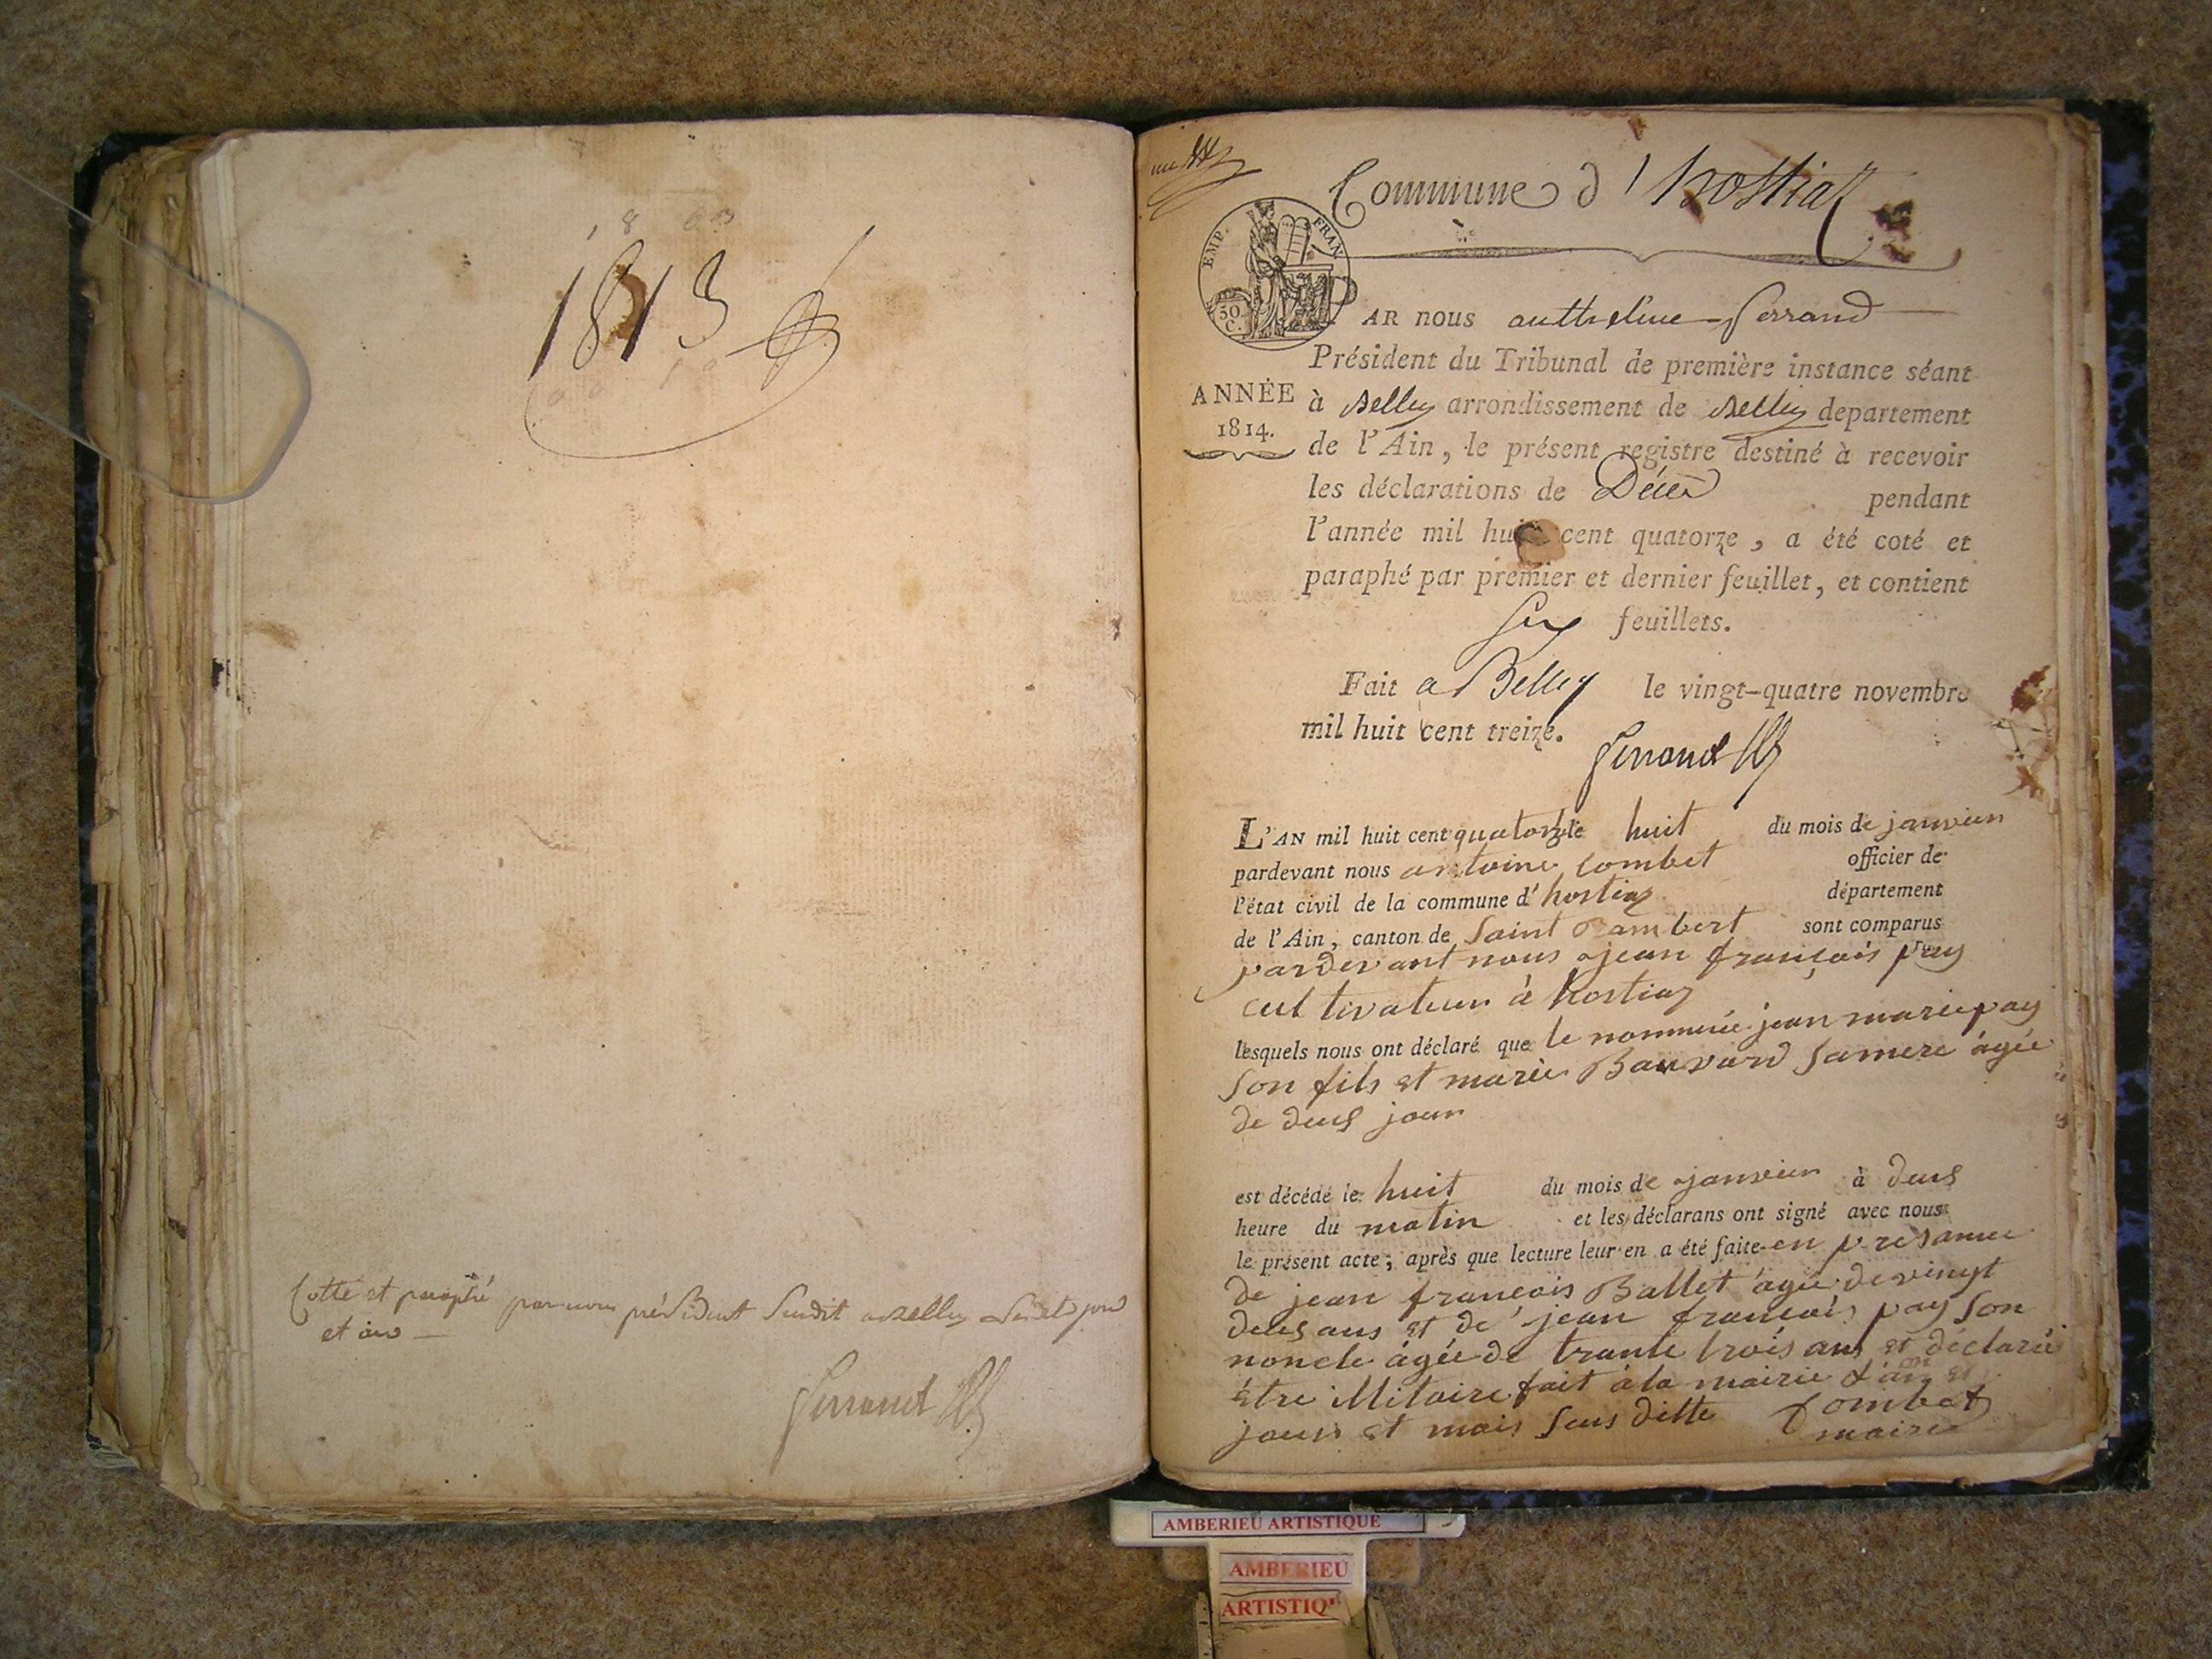 1813
Cotté et paraphé par nous président susdit a Belley les dits jour
et an
Ferrand
Commune d'hostiaz
EMP. FRAN
30.
C.
ANNÉE
1814.
PAR nous Anthelme Ferrand
Président du Tribunal de première instance séant
à Belley arrondissement de Belley departement
de l'Ain, le présent registre destiné à recevoir
les déclarations de Décès pendant
l'année mil huit cent quatorze, a été coté et
paraphé par premier et dernier feuillet, et contient
six feuillets.
Fait a Belley le vingt-quatre novembre
mil huit cent treize.
Ferrand
L'AN mil huit cent quatorze le huit du mois de janvien
pardevant nous antoine Combet officier de
l'état civil de la commune d'hostiaz département
de l'Ain, canton de Saint Rambert sont comparus
pardevant nous jean françois pay
cultivateur à hostiaz
lesquels nous ont déclaré que le nommée jean marie pay
son fils et marie Bauvard sa mere âgée
de deus jour
est décédé le huit du mois de janvien à deus
heure du matin et les déclarans ont signé avec nous
le présent acte; après que lecture leur en a été faite en presance
de jean francois Ballet âgé de vingt
deus ans et de jean francois pay son
noncle âgée de trante trois ans et déclarée
être illitaire fait à la mairie d'an et
jours et mais sus ditte Combet
maire
AMBERIEU ARTISTIQUE
AMBERIEU
ARTISTIQ